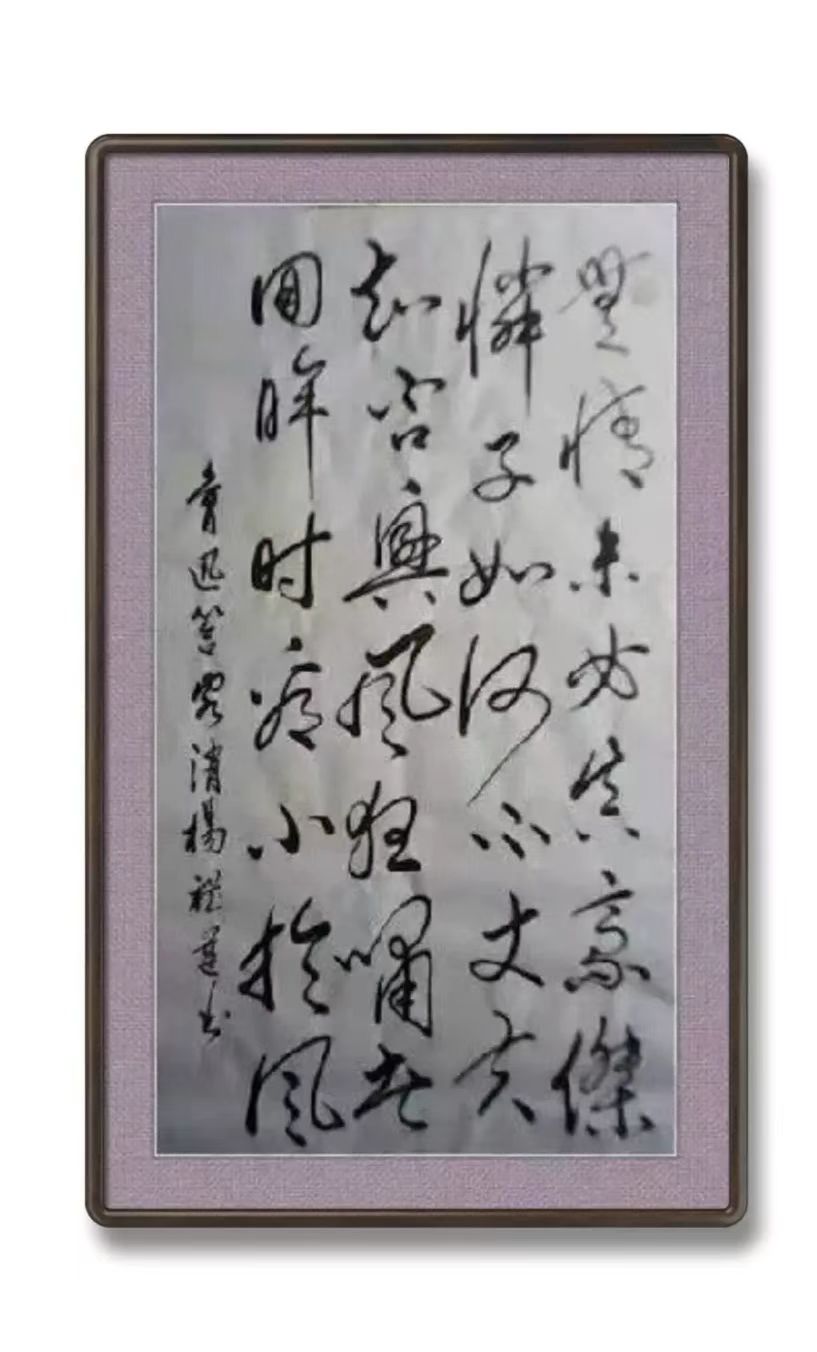 無情未必真豪傑
憐子如何不丈夫
知否興風狂嘯者
回眸时看小於
魯迅答客消楊書